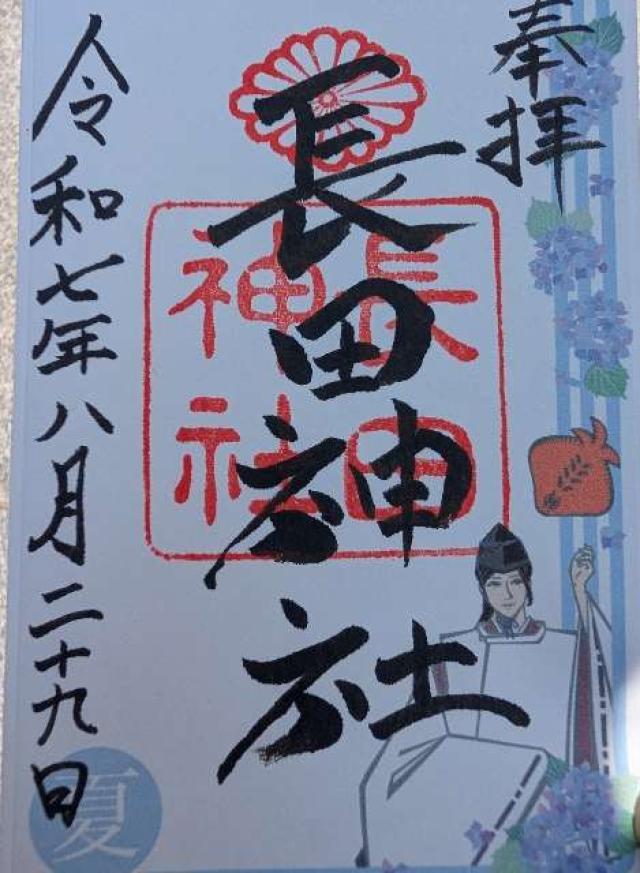 奉拝
長田神社
長田
神社
令和七年八月二十九日
夏